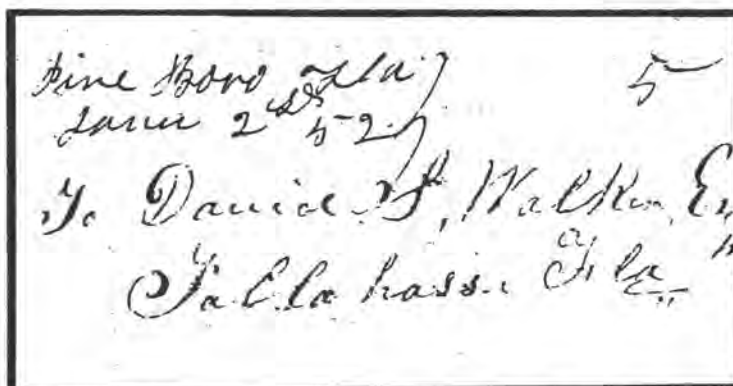 Pine Boro Fla 5
June 2nd 52
To David S, Walker, Es
Tallahassee Fla